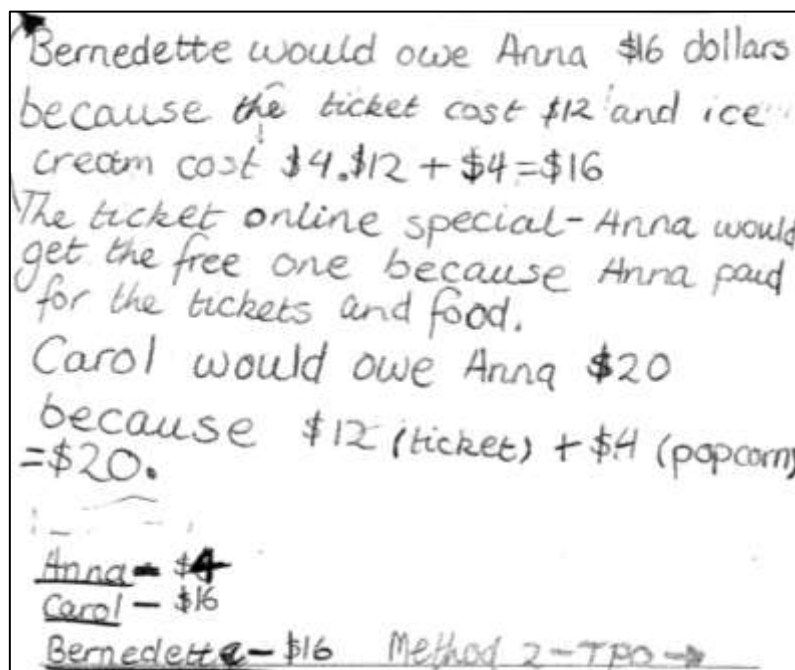 Bernedette would owe Anna $16 dollars
because the ticket cost $12 and ice
cream cost $4.$12 + $4 = $16
The ticket online special - Anna would
get the free one because Anna paid
for the tickets and food.
Carol would owe Anna $20
because $12 (ticket) + $4 (popcorn)
= $20.
Anna - $4
Carol - $16
Bernedette - $16 Method 2 - TPO →